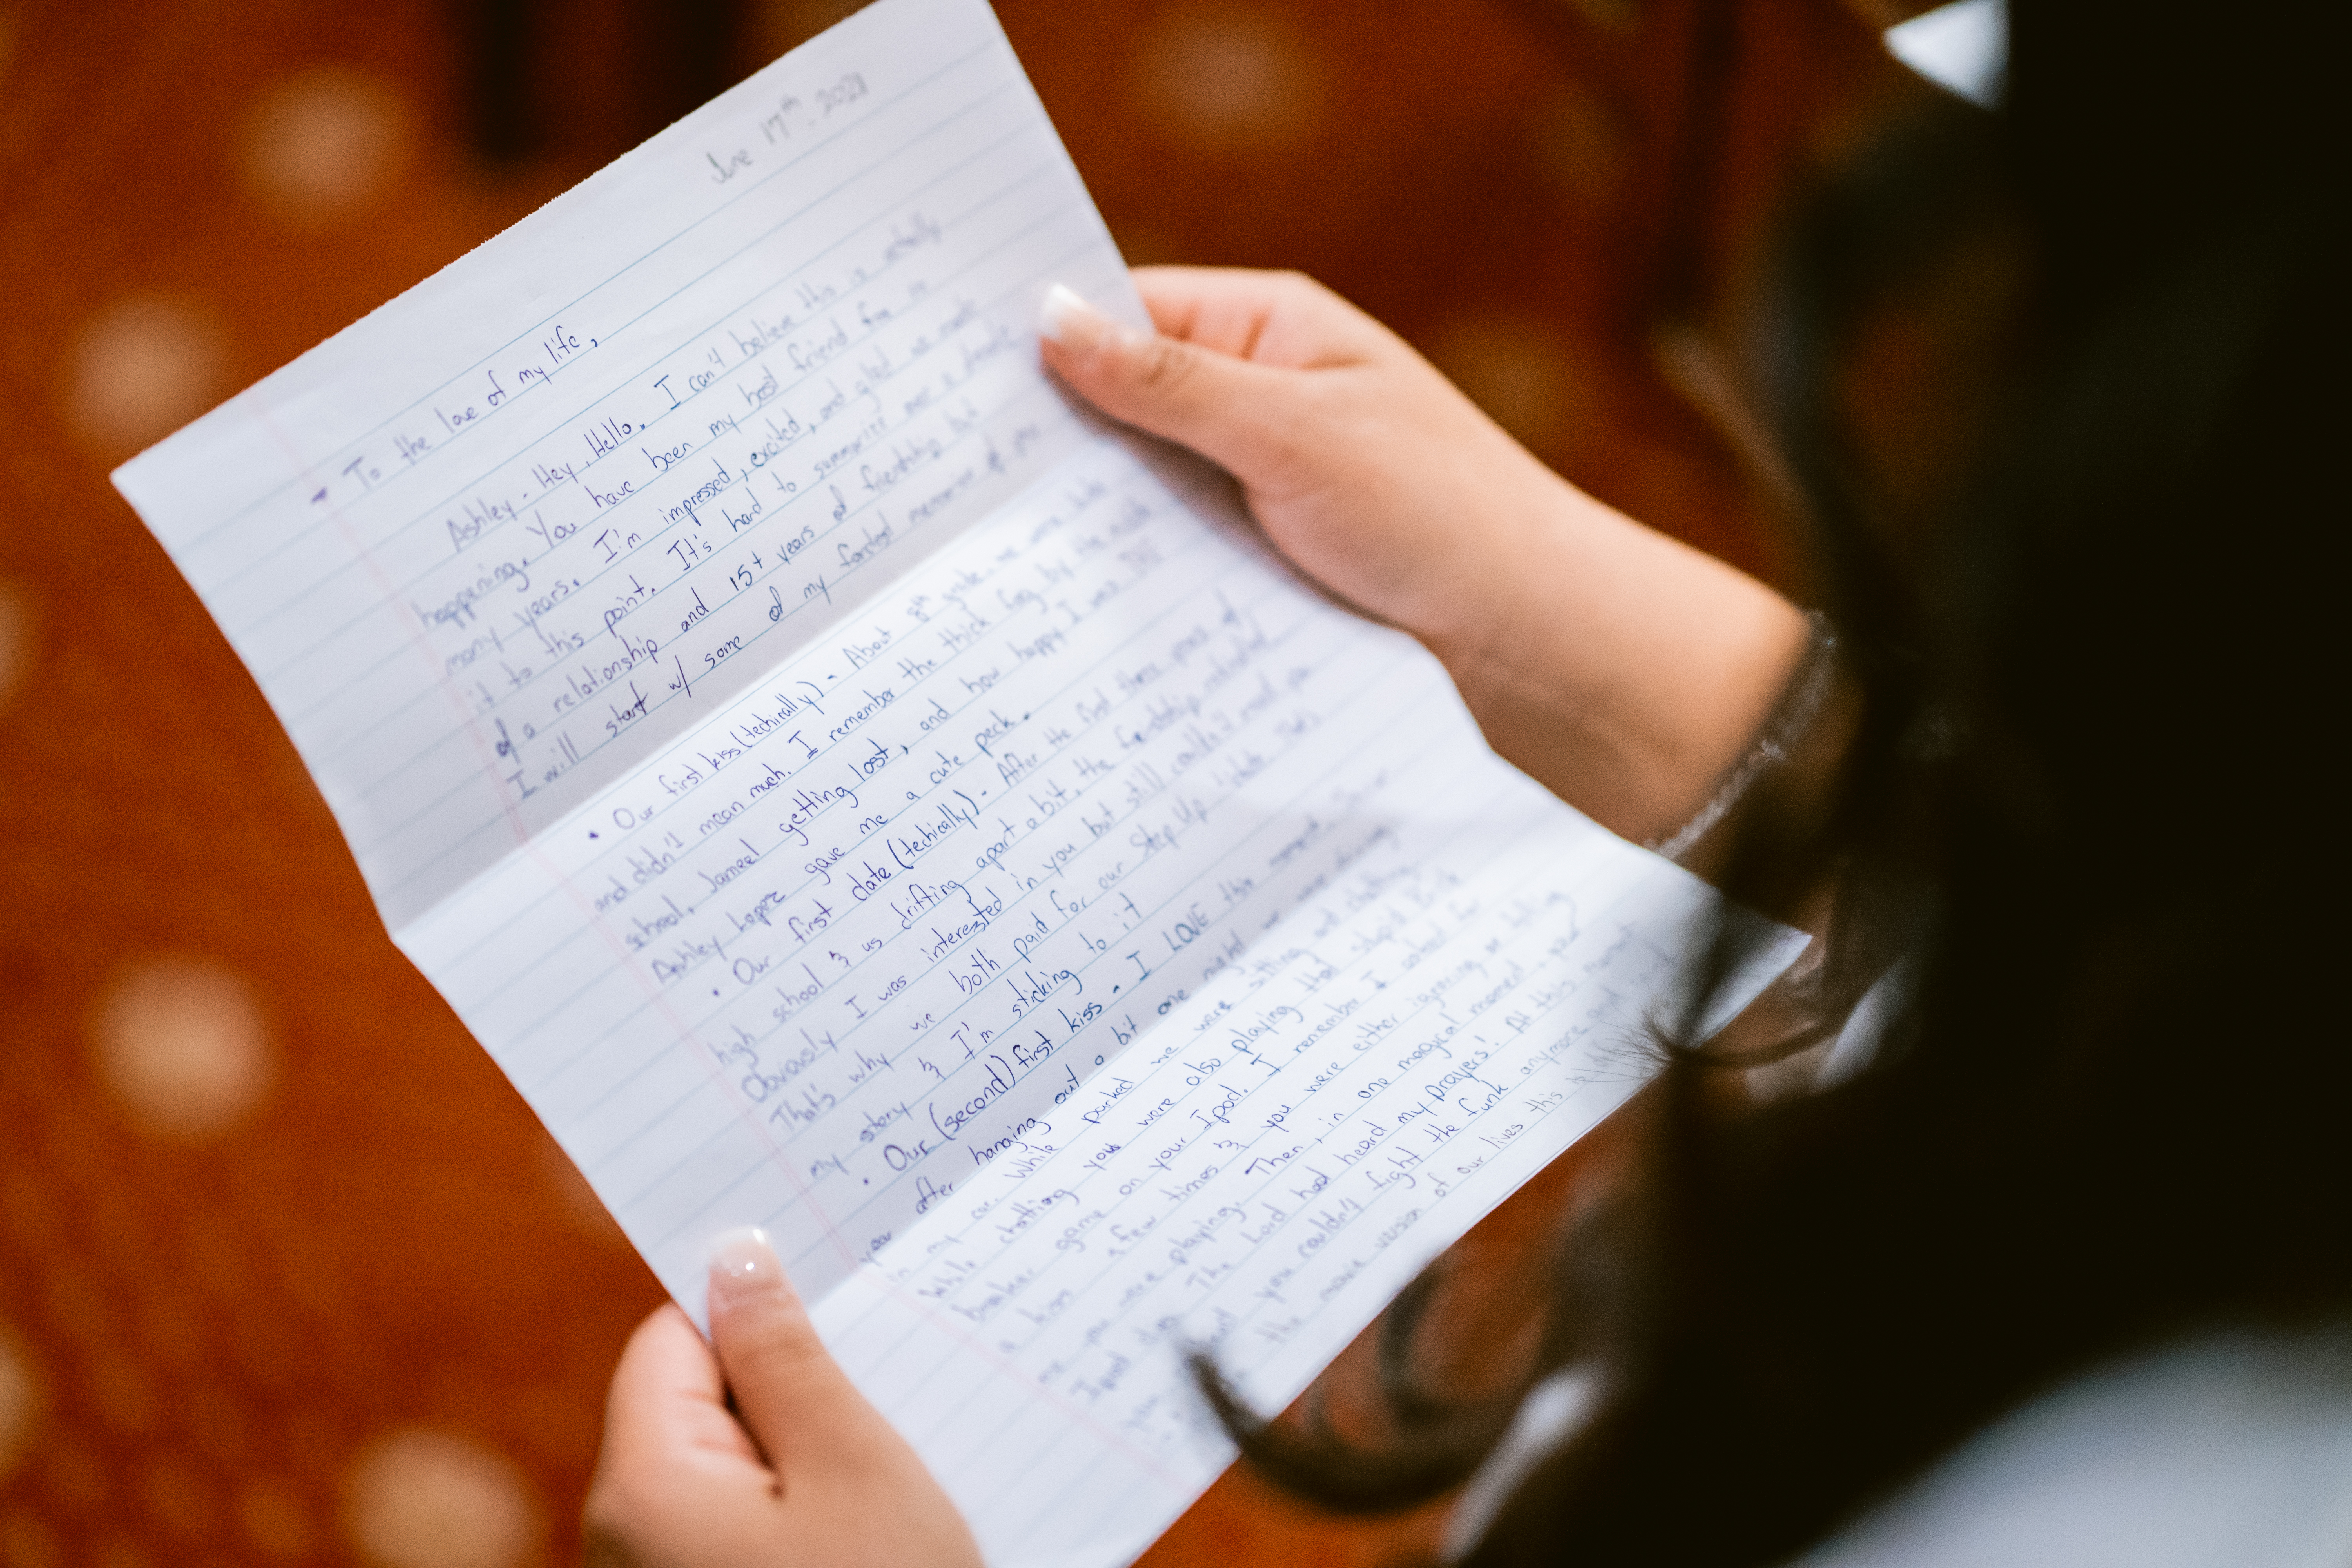 June 17th, 2021
To the love of my life,
Ashley - Hey, Hello. I can't believe this is actually
happening. You have been my best friend for so
many years. I'm impressed, excited, and glad we made
it to this point. It's hard to summarize over a decade
of a relationship and 15+ years of friendship but
I will start w/ some of my fondest memories of you
• Our first kiss (techically) - About 8th grade - we were
and didn't mean much. I remember the thick fog by the middle
school, Jameel getting lost, and how happy I was
Ashley Lopez gave me a cute peck.
• Our first date (techically) - After the first three years of
high school & us drifting apart a bit, the friendship
Obviously I was interested in you but still
That's why we both paid for our Step Up
my story & I'm sticking to it
• Our (second) first kiss - I LOVE this
year after hanging out a bit one night
in my car. While parked we were sitting and chatting
While chatting you were also playing that stupid
breaker game on your Ipod. I remember I asked for
a kiss a few times & you were either ignoring or telling
me you were playing. Then, in one magical moment - your
Ipod died. The Lord had heard my prayers! At this moment
you couldn't fight the funk anymore and
the movie version of our lives this is